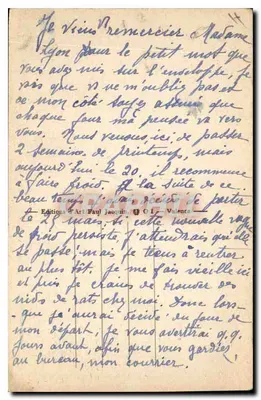 Je viens remercier Madame
Lyon pour le petit mot que
vous avez mis sur l'enveloppe, je
vois que vs ne m'oubliez pas et
de mon côté soyez assurée que
chaque jour ma pensée va vers
vous. Nous venons ici de passer
2 semaines de printemps, mais
aujourd'hui le 20, il recommence
à faire froid. A la suite de ce
beau temps
Edition Art Paul
partir
le 25 mais si cette nouvelle vague
de froid persiste j'attendrai qu'elle
se passe, mais je tiens à rentrer
au plus tôt. Je me fais vieille ici
et puis je crains de trouver des
nids de rats chez moi. Donc lors-
que j'aurai décidé du jour de
mon départ, je vous avertirai q.q.
jours avant, afin que vous gardiez,
au bureau, mon courrier.